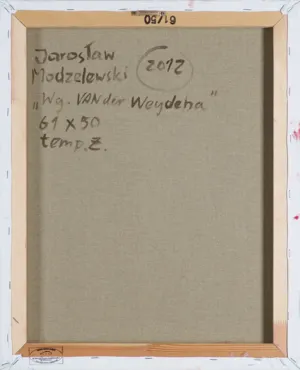 61/50
Jarosław
Modzelewski 2012
„Wg. VAN der Weydena"
61 x 50
temp. ż.